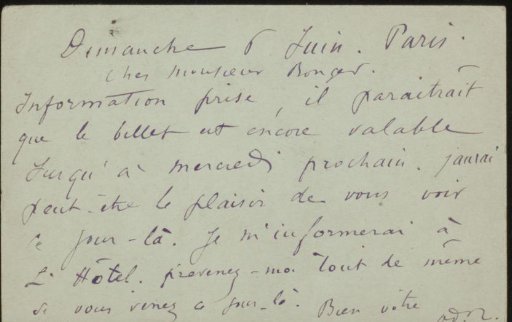 Dimanche 6 Juin. Paris.
Cher Monsieur Bonger.
Information prise, il paraîtrait
que le billet est encore valable
Jusqu'à mercredi prochain. j'aurai
peut-être le plaisir de vous voir
ce jour-là. Je m'informerai à
L'Hôtel. prévenez-moi tout de même
si vous venez ce jour-là. Bien vôtre